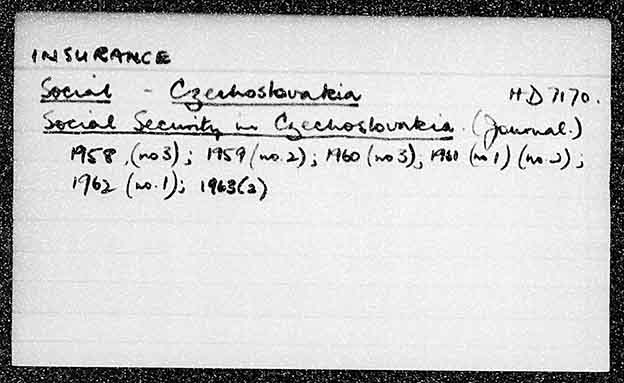 INSURANCE
Social - Czechoslovakia HD 7170.
Social Security in Czechoslovakia. (Journal.)
1958, (no 3); 1959 (no. 2); 1960 (no 3); 1961 (no 1) (no. 2);
1962 (no. 1); 1963(2)